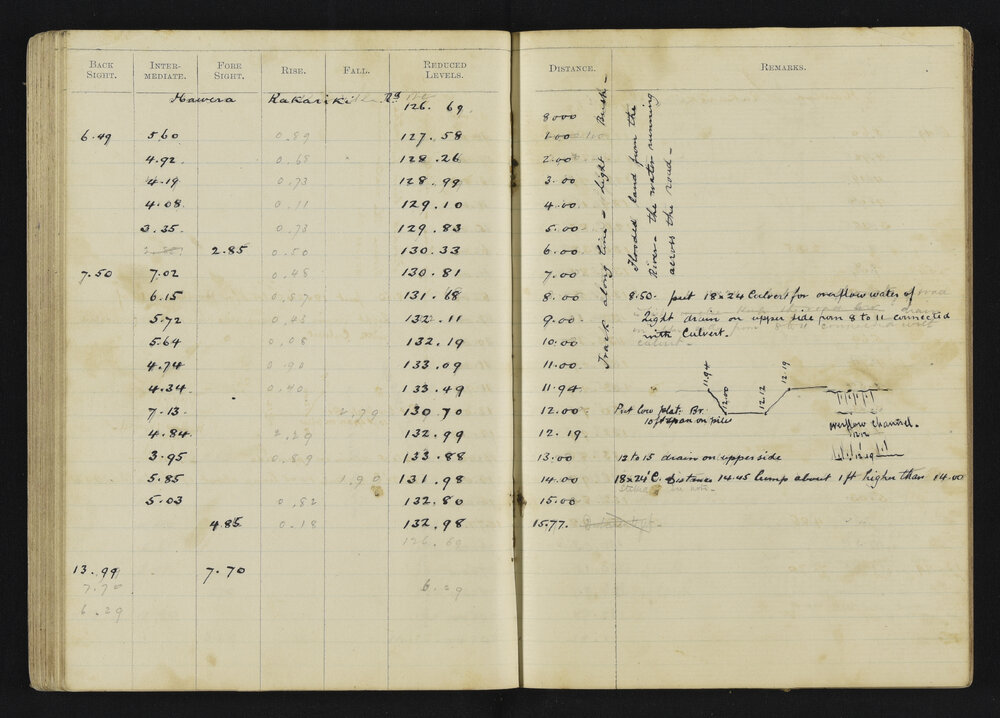 BACK SIGHT. INTER-MEDIATE. FORE SIGHT. RISE. FALL. REDUCED LEVELS. DISTANCE. REMARKS.
Hawera Kakariki Rd 126.69 8000
6.49 5.60 0.89 127.58 1.00
4.92 0.68 128.26 2.00
4.19 0.73 128.99 3.00
4.08 0.11 129.10 4.00
3.35 0.73 129.83 5.00
2.85 0.50 130.33 6.00
7.50 7.02 0.48 130.81 7.00
6.15 0.87 131.68 8.00 8.50. put 18x24 Culvert for overflow water of
5.72 0.43 132.11 9.00 light drain on upper side from 8 to 11 connected
5.64 0.08 132.19 10.00 with Culvert.
4.74 0.90 133.09 11.00
4.34 0.40 133.49 11.94
7.13 2.79 130.70 12.00 Put low plat. Br.
10ft span on piles
4.84 2.29 132.99 12.19
3.95 0.89 133.88 13.00 13 to 15 drain on upper side
5.85 1.90 131.98 14.00 18x24 C. Distance 14.45 lump about 1ft higher than 14.00
5.03 0.82 132.80 15.00
4.85 0.18 132.98 15.77.
126.69
13.99 7.70
7.70 6.29
6.29
Track along line - Light Bush -
Flooded land from the
River - the water running
across the road -
11.94
12.00
12.12
12.19
overflow channel.
12.12
12.19